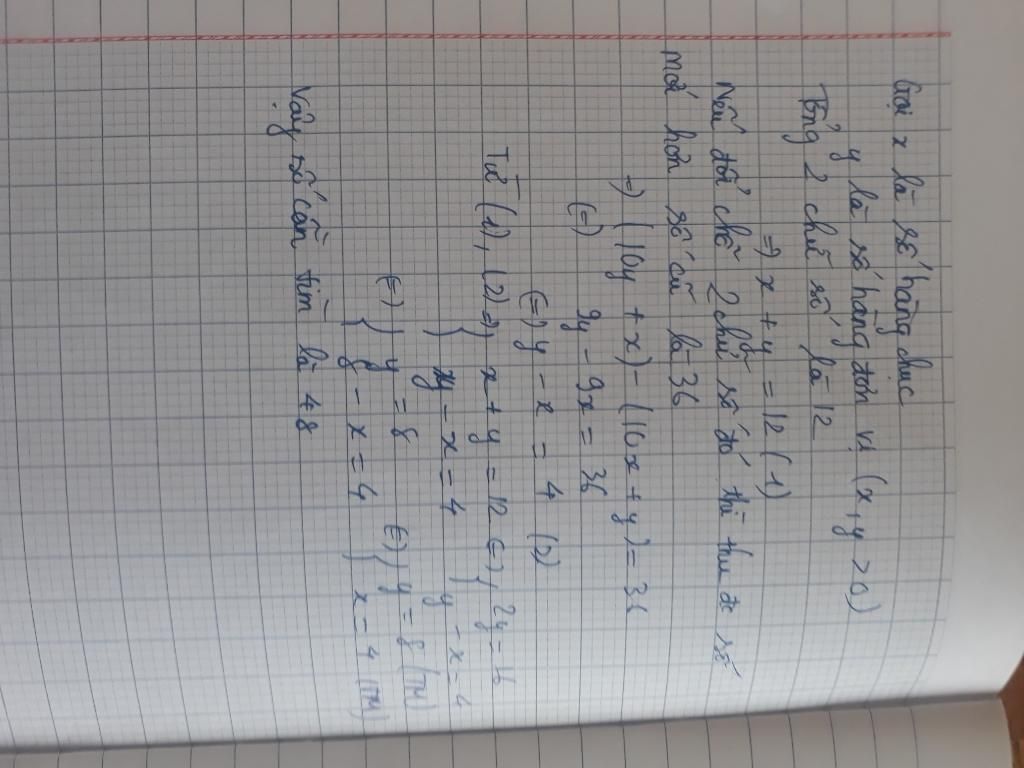 Gọi x là số hàng chục
y là số hàng đơn vị (x, y > 0)
Tổng 2 chữ số là 12
=) x + y = 12 (1)
Nếu đổi chỗ 2 chữ số đó thì thu đc số
mới hơn số cũ là 36
=) (10y + x) - (10x + y) = 36
(=) 9y - 9x = 36
(=) y - x = 4 (2)
Từ (1), (2) =) { x + y = 12 (=) { 2y = 16
{ y - x = 4 { y - x = 4
(=) { y = 8 (=) { y = 8 (TM)
{ 8 - x = 4 { x = 4 (TM)
Vậy số cần tìm là 48